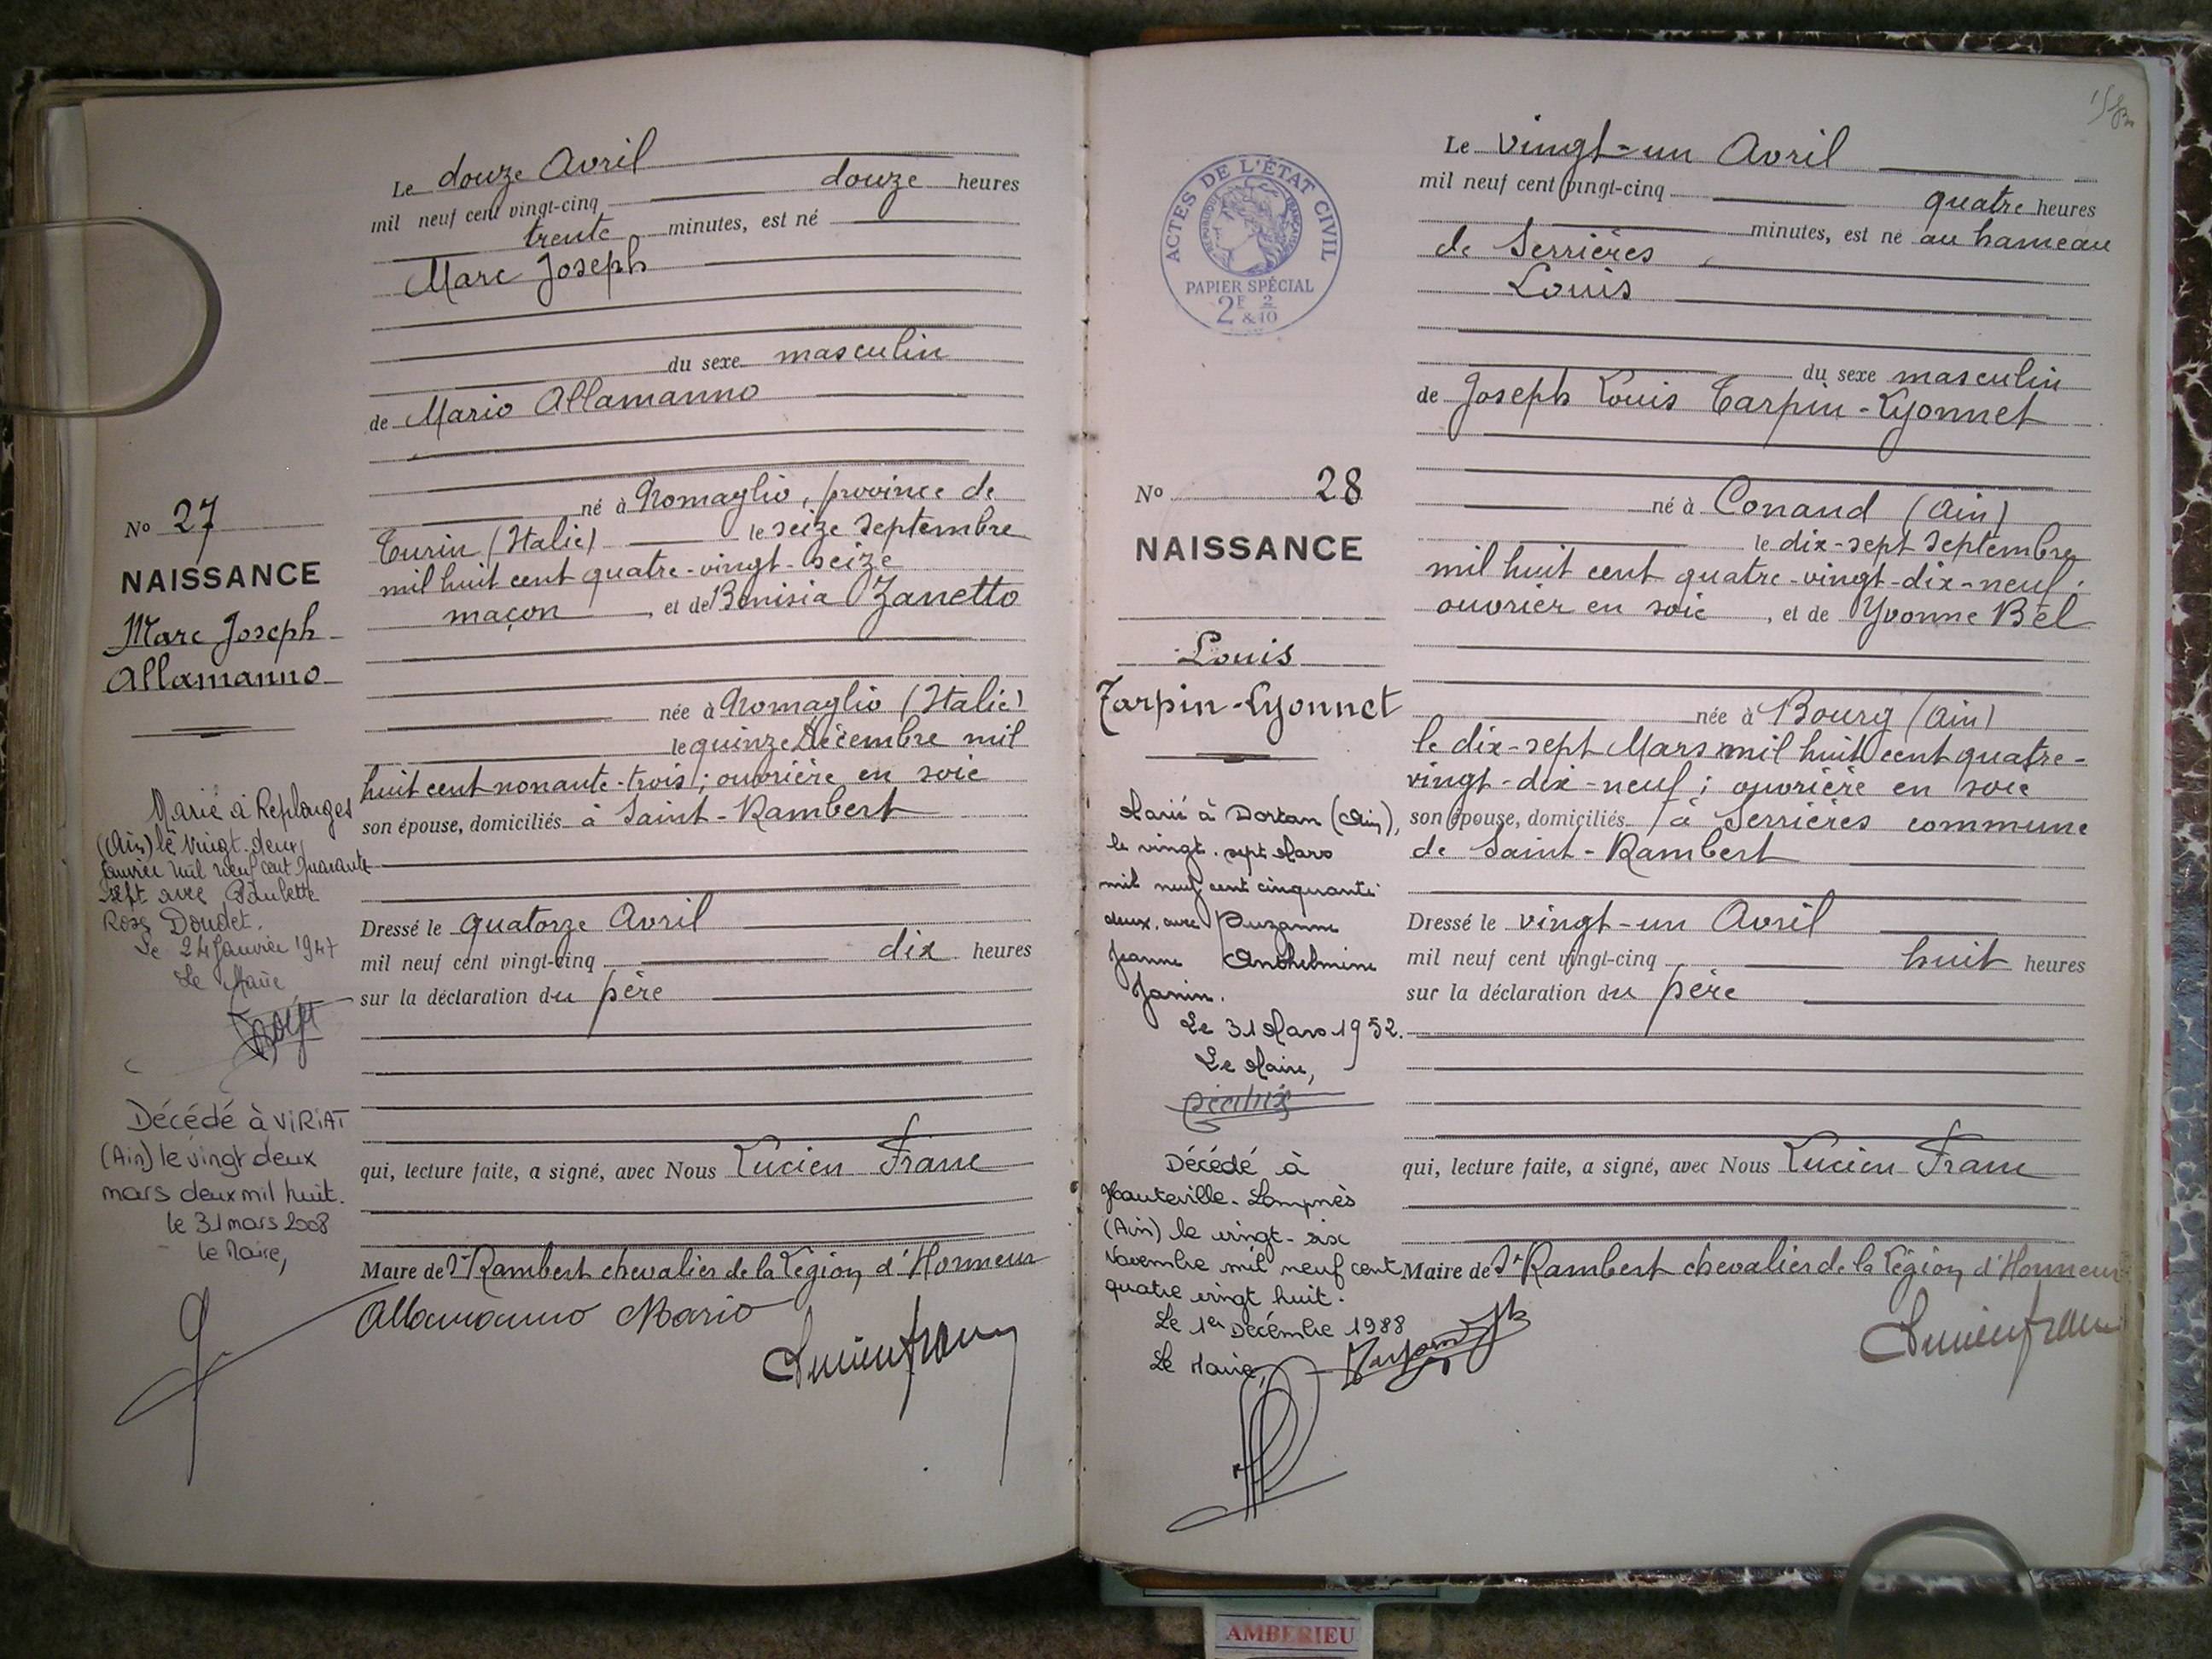 Le douze Avril
mil neuf cent vingt-cinq douze heures
trente minutes, est né
Marc Joseph
du sexe masculin
de Mario Allamanno
né à Romaglio, province de
Turin (Italie) le seize Septembre
mil huit cent quatre-vingt-seize
maçon, et de Zanetto
née à Romaglio (Italie)
le quinze Décembre mil
huit cent nonante-trois; ouvrière en soie
son épouse, domiciliés à Saint-Rambert
Dressé le quatorze Avril
mil neuf cent vingt-cinq dix heures
sur la déclaration du père
qui, lecture faite, a signé, avec Nous Lucien Franc
Maire de St Rambert chevalier de la Légion d'Honneur
Allamanno Mario
Lucien Franc
No 27
NAISSANCE
Marc Joseph
Allamanno
Marié à Replonges
(Ain) le vingt-deux
Janvier mil neuf cent quarante
sept avec Paulette
Rose Doudet.
Le 24 Janvier 1947
Le Maire
Décédé à VIRIAT
(Ain) le vingt deux
mars deux mil huit.
le 31 mars 2008
le Maire,
ACTES DE L'ÉTAT CIVIL
RÉPUBLIQUE FRANÇAISE
PAPIER SPÉCIAL
2F 2
&10
No 28
NAISSANCE
Louis
Tarpin-Lyonnet
Marié à Dortan (Ain),
le vingt-sept Mars
mil neuf cent cinquante
deux, avec Suzanne
Jeanne Anthelmine
Janin.
Le 31 Mars 1952.
Le Maire,
Décédé à
Hauteville-Lompnès
(Ain) le vingt-six
Novembre mil neuf cent
quatre vingt huit.
Le 1er Décembre 1988
Le Maire,
Le vingt-un Avril
mil neuf cent vingt-cinq quatre heures
minutes, est né au hameau
de Serrières,
Louis
du sexe masculin
de Joseph Louis Tarpin-Lyonnet
né à Conand (Ain)
le dix-sept Septembre
mil huit cent quatre-vingt-dix-neuf;
ouvrier en soie, et de Yvonne Bel
née à Bourg (Ain)
le dix-sept Mars mil huit cent quatre-
vingt-dix-neuf; ouvrière en soie
son épouse, domiciliés à Serrières commune
de Saint-Rambert
Dressé le vingt-un Avril
mil neuf cent vingt-cinq huit heures
sur la déclaration du père
qui, lecture faite, a signé, avec Nous Lucien Franc
Maire de St Rambert chevalier de la Légion d'Honneur
Lucien Franc
AMBERIEU